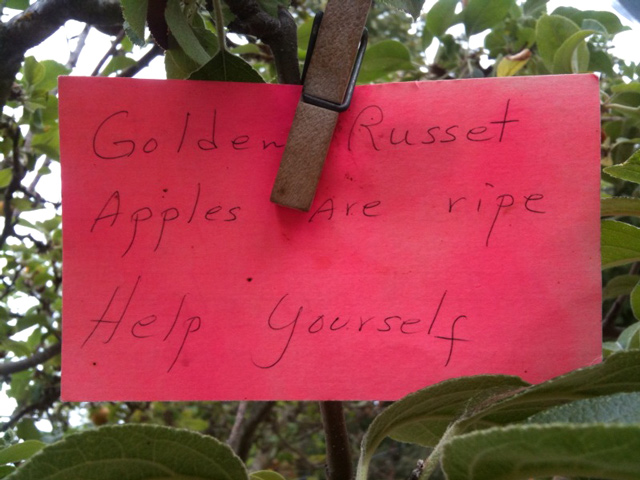 Golden Russet
Apples Are ripe
Help Yourself